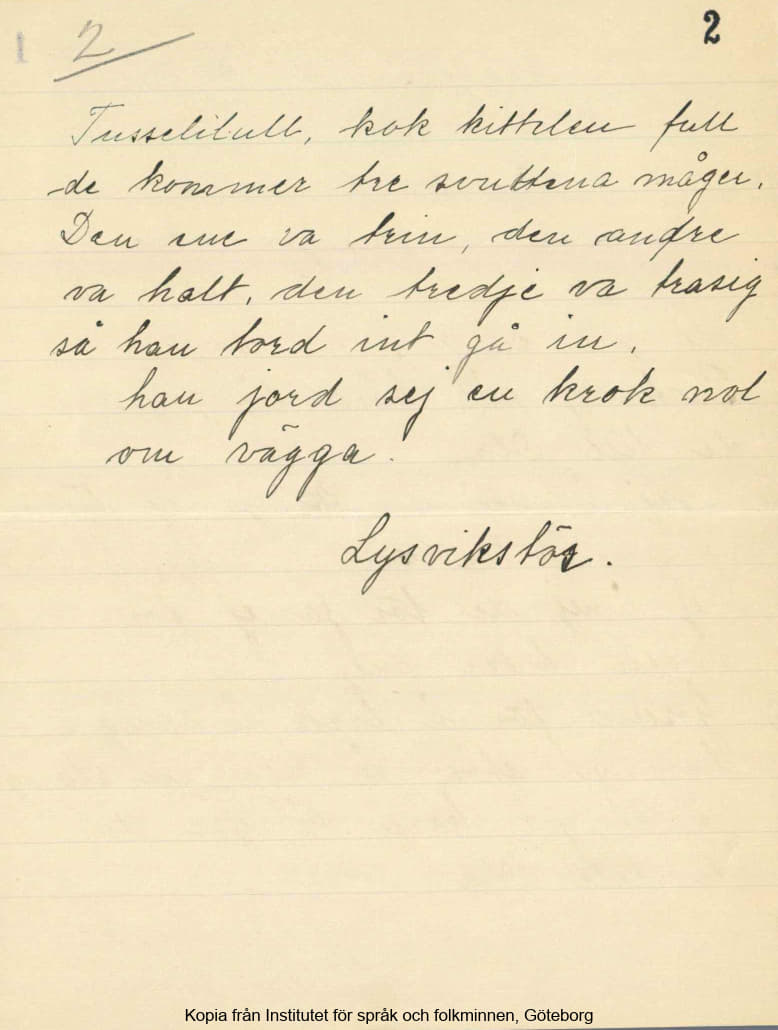 2 2
Tusselilull, kok kittelen full
de kommer tre svultena måger.
Den ene va trin, den andre
va halt, den tredje va trasig
så han tord int gå in.
han jord sej en krok nol
om vägga.
Lysvikstös.
Kopia från Institutet för språk och folkminnen, Göteborg